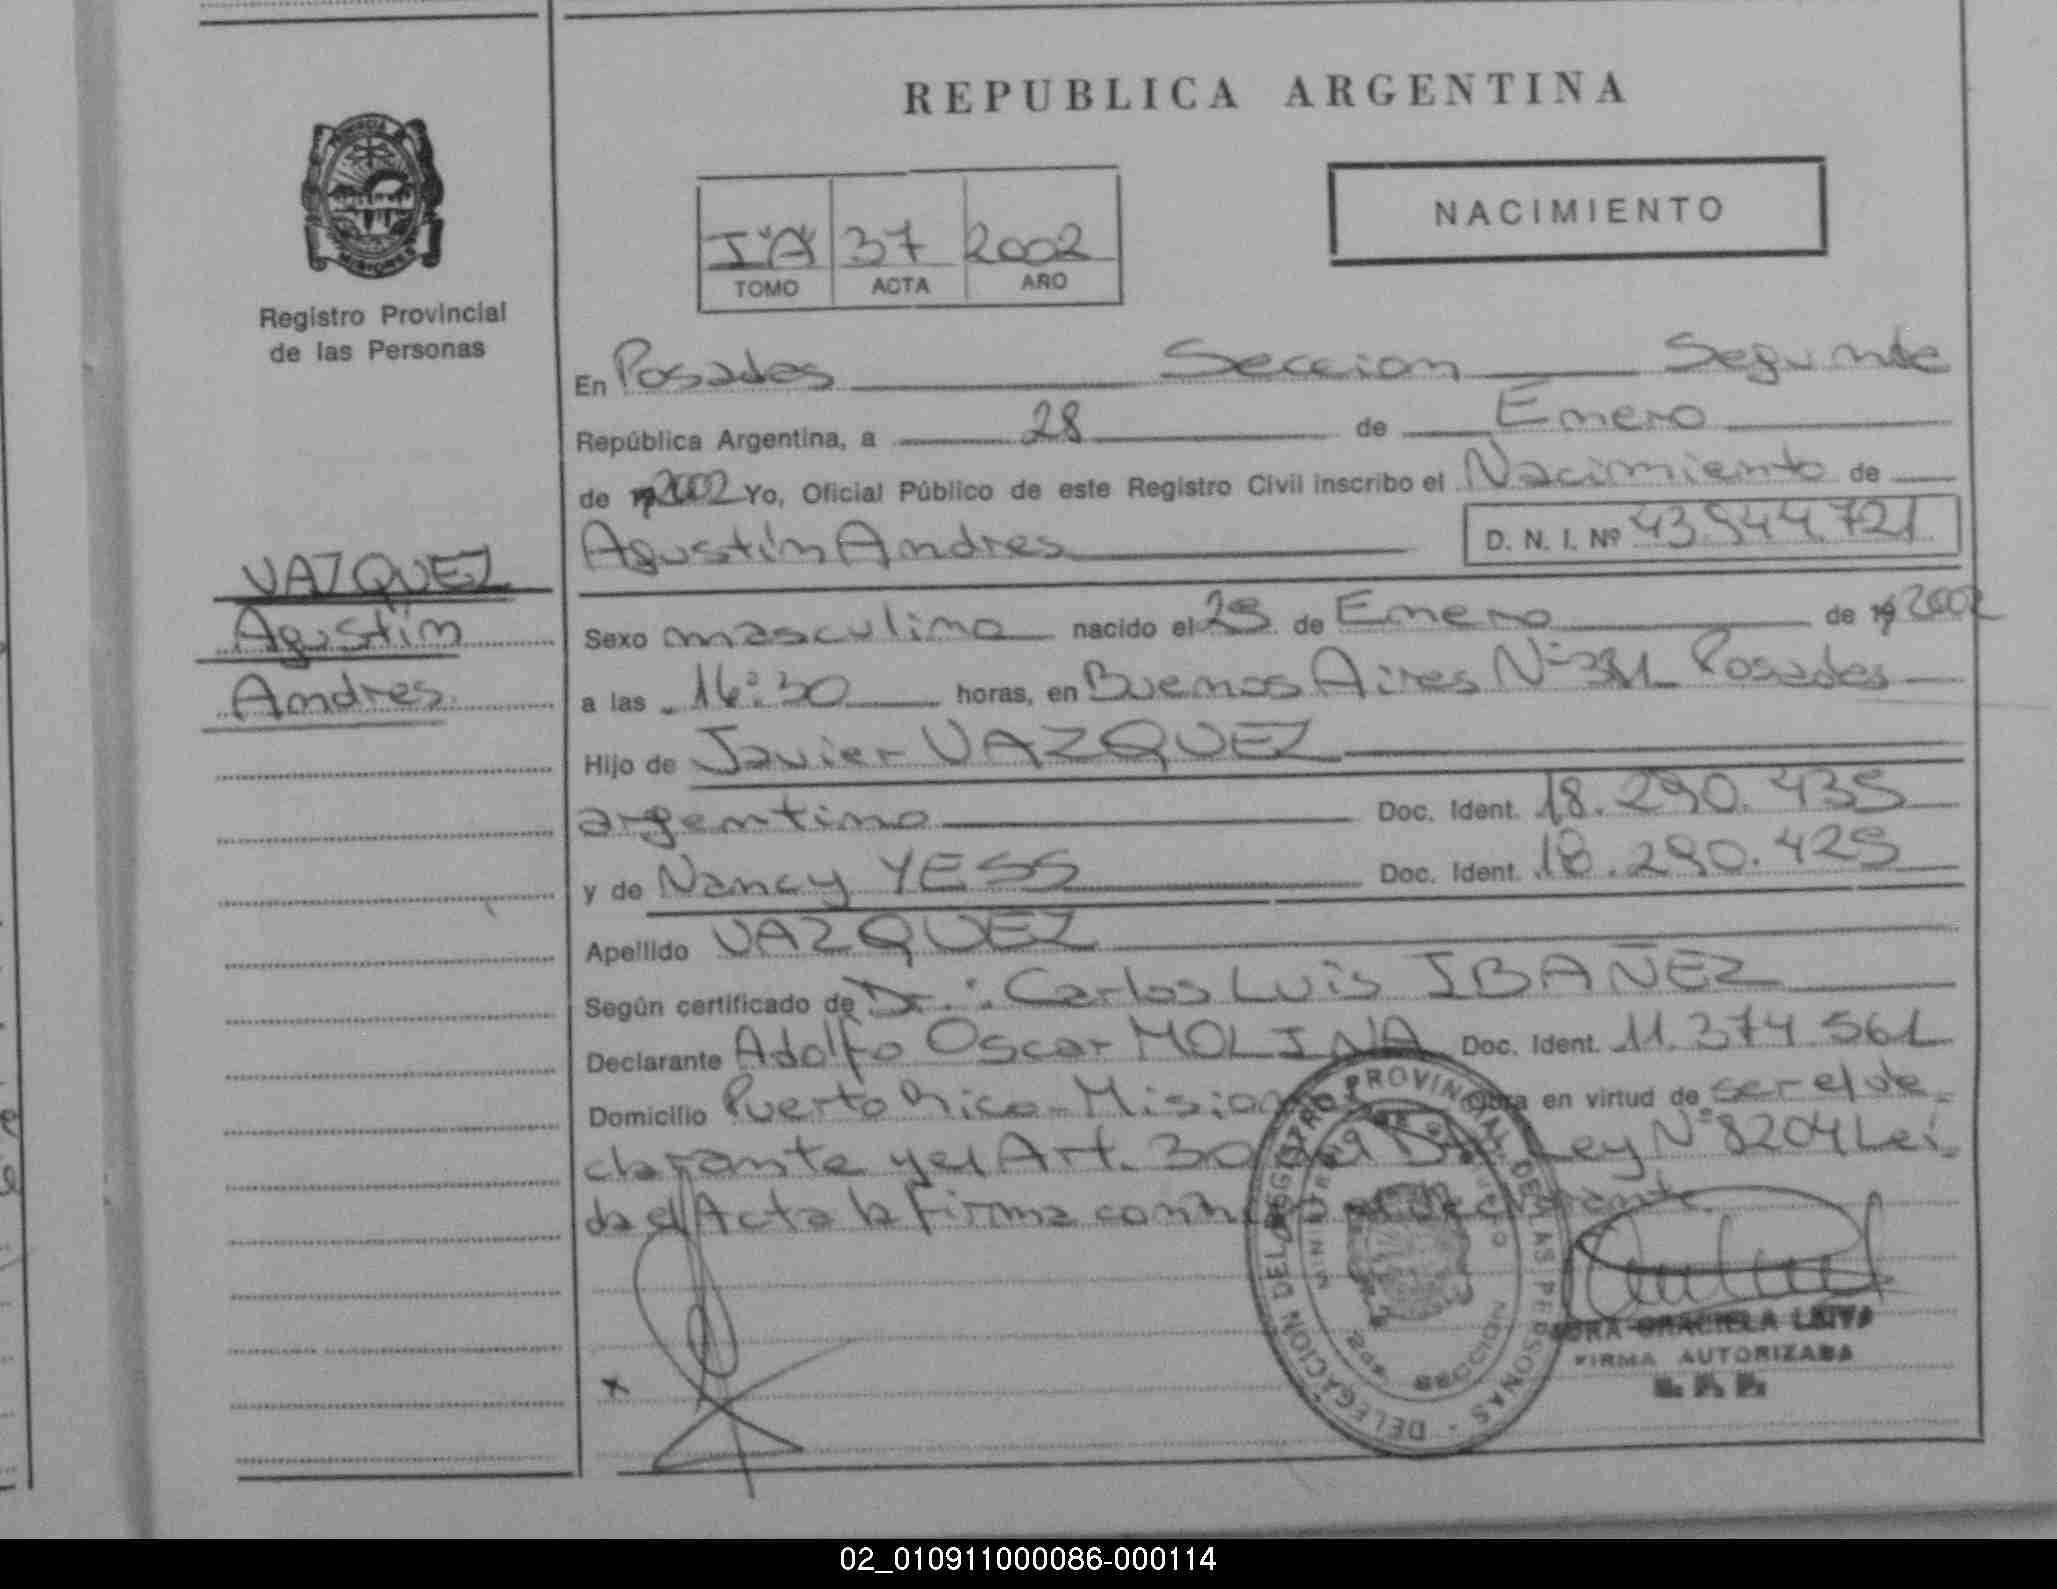 REPUBLICA ARGENTINA
PROVINCIA
MISIONES
Registro Provincial
de las Personas
I "A" 37 2002
TOMO ACTA AÑO
NACIMIENTO
En Posadas Seccion Segunda
República Argentina, a 28 de Enero
de 19 2002 Yo, Oficial Público de este Registro Civil inscribo el Nacimiento de
Agustín Andres D. N. I. Nº 43.944.721
VAZQUEZ
Agustín
Andres
Sexo masculino nacido el de Enero de 19 2002
a las horas, en Buenos Aires Nº Posadas
Hijo de Javier VAZQUEZ
argentino Doc. Ident. 18.290.435
y de Nancy YESS Doc. Ident. 18.290.425
Apellido VAZQUEZ
Según certificado de Dr.: Carlos Luis IBAÑEZ
Declarante Adolfo Oscar MOLINA Doc. Ident. 11.374.561
Domicilio Puerto Rico Misiones Obra en virtud de ser el de-
clarante y el Art. 30 Ley Nº 8204 Lei-
da el Acta la firma conmigo el declarante.
DELEGACION DEL REGISTRO PROVINCIAL DE LAS PERSONAS
SECCION
GRACIELA LEIVA
FIRMA AUTORIZADA
02_010911000086-000114